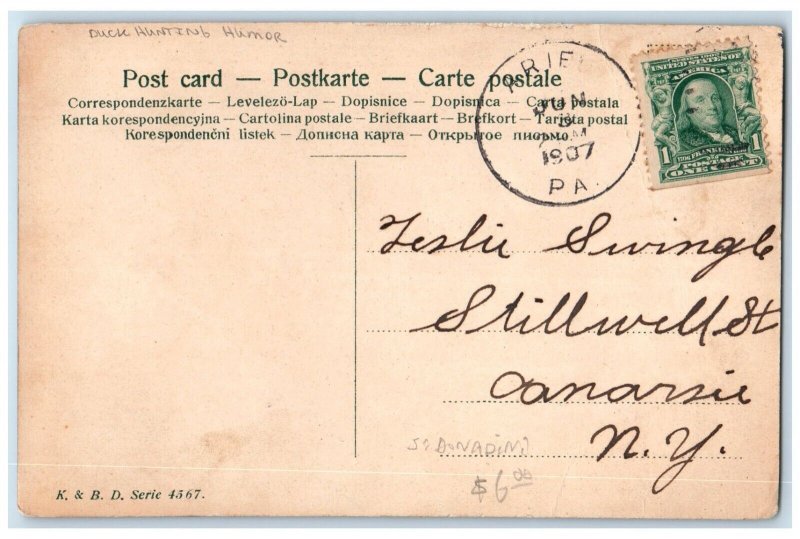 DUCK HUNTING HUMOR
Post card — Postkarte — Carte postale
Correspondenzkarte — Levelezö-Lap — Dopisnice — Dopisnica — Carta postala
Karta korespondencyjna — Cartolina postale — Briefkaart — Brefkort — Tarjeta postal
Korespondenční lístek — Дописна карта — Открытое письмо
ARIEL
JUN
1907
PA.
SERIES 1902
UNITED STATES OF
AMERICA
1 BENJ. FRANKLIN 1
POSTAGE
ONE CENT
Leslie Swingle
Stillwell St
Canarsie
N.Y.
$6.00
K. & B. D. Serie 4567.